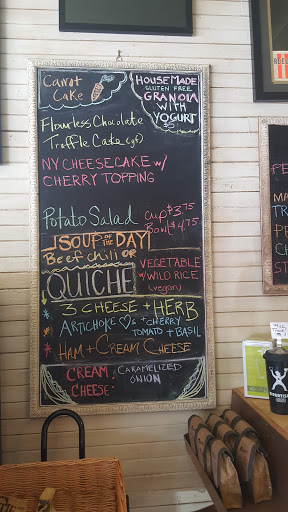 Carrot
Cake
HOUSEMADE
GLUTEN FREE
GRANOLA
WITH
YOGURT
$5
Flourless Chocolate
Truffle Cake (gf)
NY CHEESECAKE w/
CHERRY TOPPING
Potato Salad
Cup $3.75
Bowl $4.75
SOUP OF THE DAY
Beef chili OR
VEGETABLE
w/ WILD RICE
(vegan)
QUICHE
* 3 CHEESE + HERB
* ARTICHOKE ♡s + CHERRY
TOMATO + BASIL
* HAM + CREAM CHEESE
CREAM
CHEESE:
CARAMELIZED
ONION
PE
MA
TR
PE